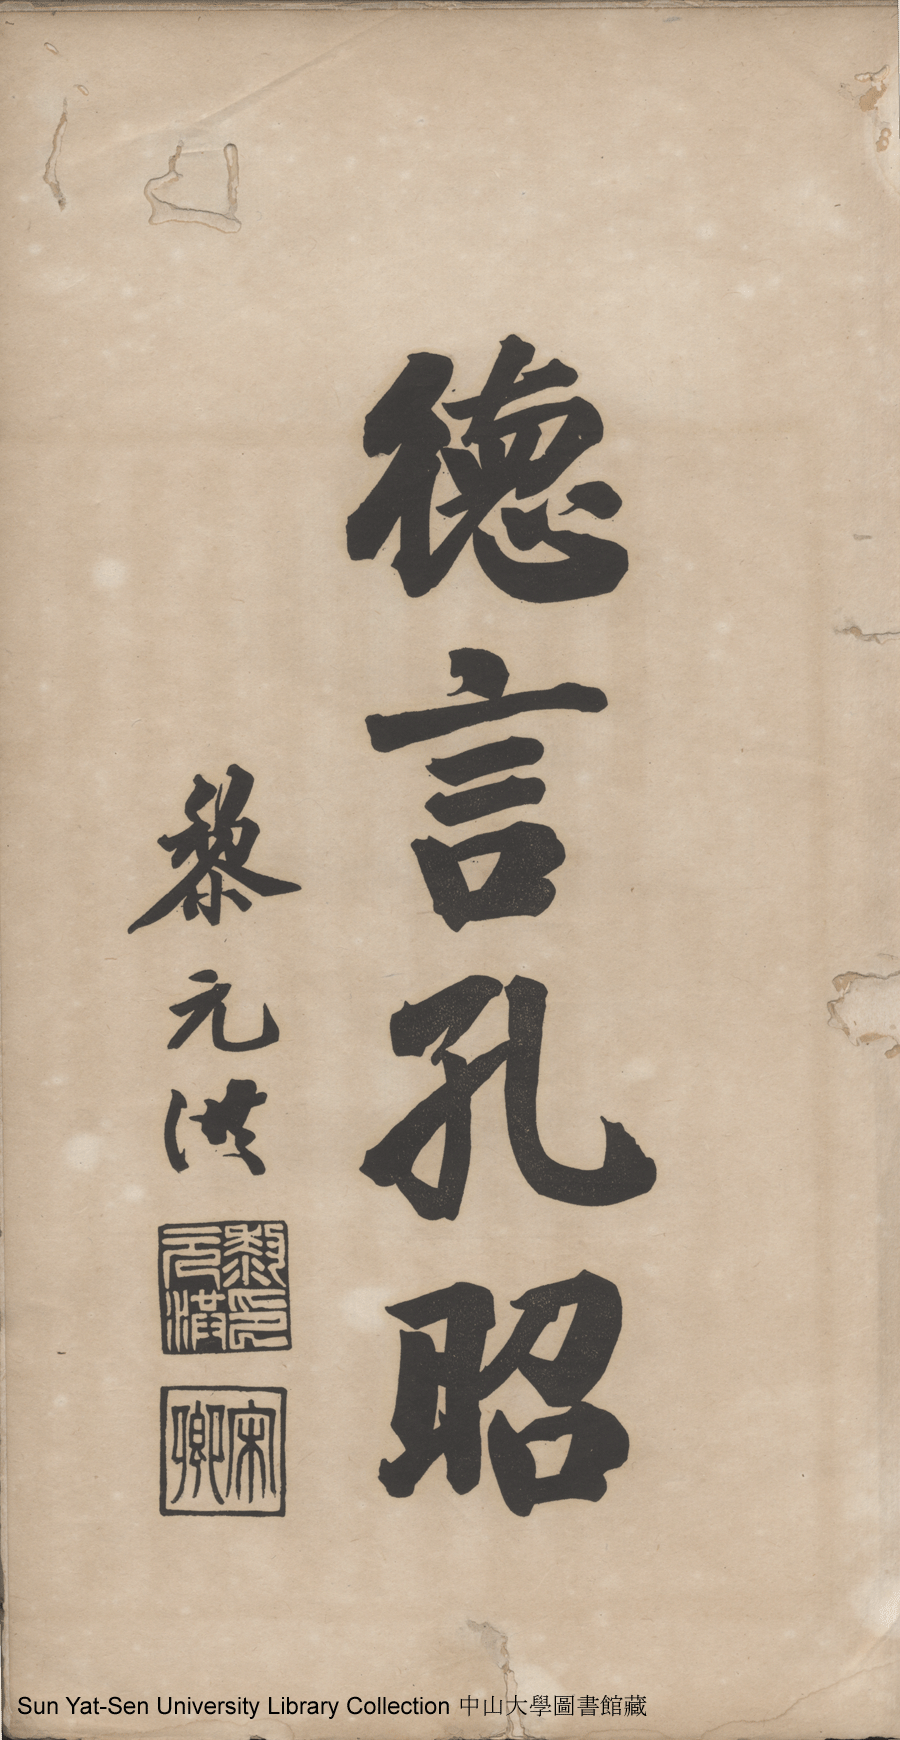 德言孔昭
黎元洪
黎元洪印
宋卿
Sun Yat-Sen University Library Collection 中山大學圖書館藏